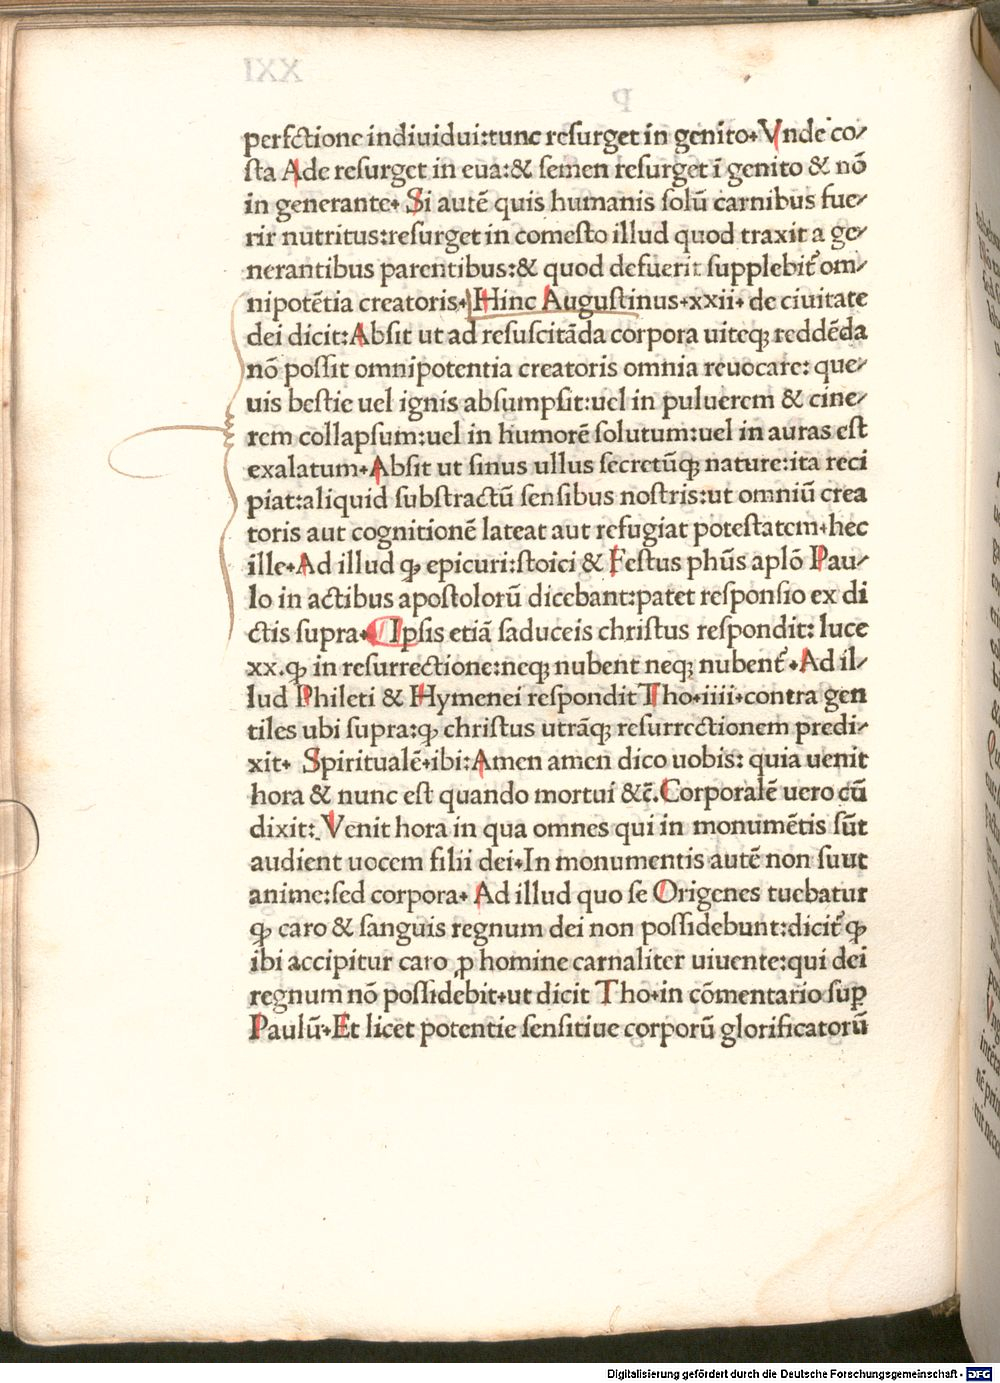 perfctione indiuidui:tunc resurget in genito. Vnde co-
sta Ade resurget in eua:& semen resurget ī genito & nō
in generante. Si autē quis humanis solū carnibus fue-
rir nutritus:resurget in comesto illud quod traxit a ge-
nerantibus parentibus:& quod defuerit supplebit̉ om-
nipotētia creatoris. Hinc Augustinus.xxii. de ciuitate
dei dicit:Absit ut ad resuscitāda corpora uiteqꝫ reddēda
nō possit omnipotentia creatoris omnia reuocare: que-
uis bestie uel ignis absumpsit:uel in puluerem & cine-
rem collapsum:uel in humorē solutum:uel in auras est
exalatum. Absit ut sinus ullus secretūqꝫ nature:ita reci
piat:aliquid substractū sensibus nostris:ut omniū crea
toris aut cognitionē lateat aut refugiat potestatem.hec
ille. Ad illud ꝙ epicuri:stoici & Festus phūs aplō Pau-
lo in actibus apostolorū dicebant:patet responsio ex di
ctis supra. Ipsis etiā saduceis christus respondit: luce
xx.ꝙ in resurrectione:neqꝫ nubent neqꝫ nubent̉. Ad il-
lud Phileti & Hymenei respondit Tho.iiii.contra gen
tiles ubi supra:ꝙ christus utrāqꝫ resurrectionem predi-
xit. Spiritualē.ibi:Amen amen dico uobis: quia uenit
hora & nunc est quando mortui &c̄. Corporalē uero cū
dixit: Venit hora in qua omnes qui in monumētis sūt
audient uocem filii dei. In monumentis autē non suut
anime:sed corpora. Ad illud quo se Origenes tuebatur
ꝙ caro & sanguis regnum dei non possidebunt:dicit̉ ꝙ
ibi accipitur caro ꝓ homine carnaliter uiuente:qui dei
regnum nō possidebit.ut dicit Tho.in cōmentario suꝑ
Paulū. Et licet potentie sensitiue corporū glorificatorū
Digitalisierung gefördert durch die Deutsche Forschungsgemeinschaft - DFG